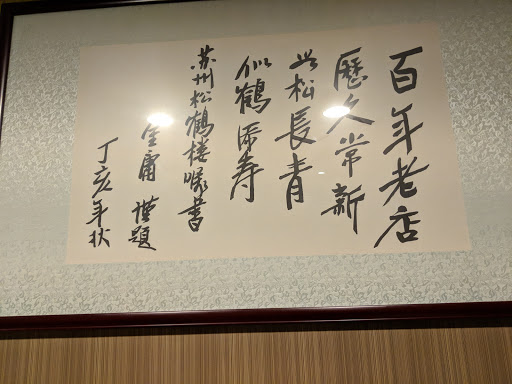 百年老店
歷久常新
松長青
似鶴添寿
苏州松鶴楼嘱書
金庸 谨題
丁亥年秋